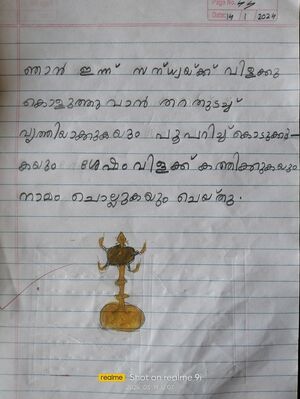 Page No. 44
Date: 14 / 1 / 2024
ഞാൻ ഇന്ന് സന്ധ്യയ്ക്ക് വിളക്കു
കൊളുത്തുവാൻ തറതുടച്ച്
വൃത്തിയാക്കുകയും പൂപറിച്ച് കൊടുക്കു-
കയും ശേഷം വിളക്ക് കത്തിക്കുകയും
നാമം ചൊല്ലുകയും ചെയ്തു.
realme Shot on realme 9i